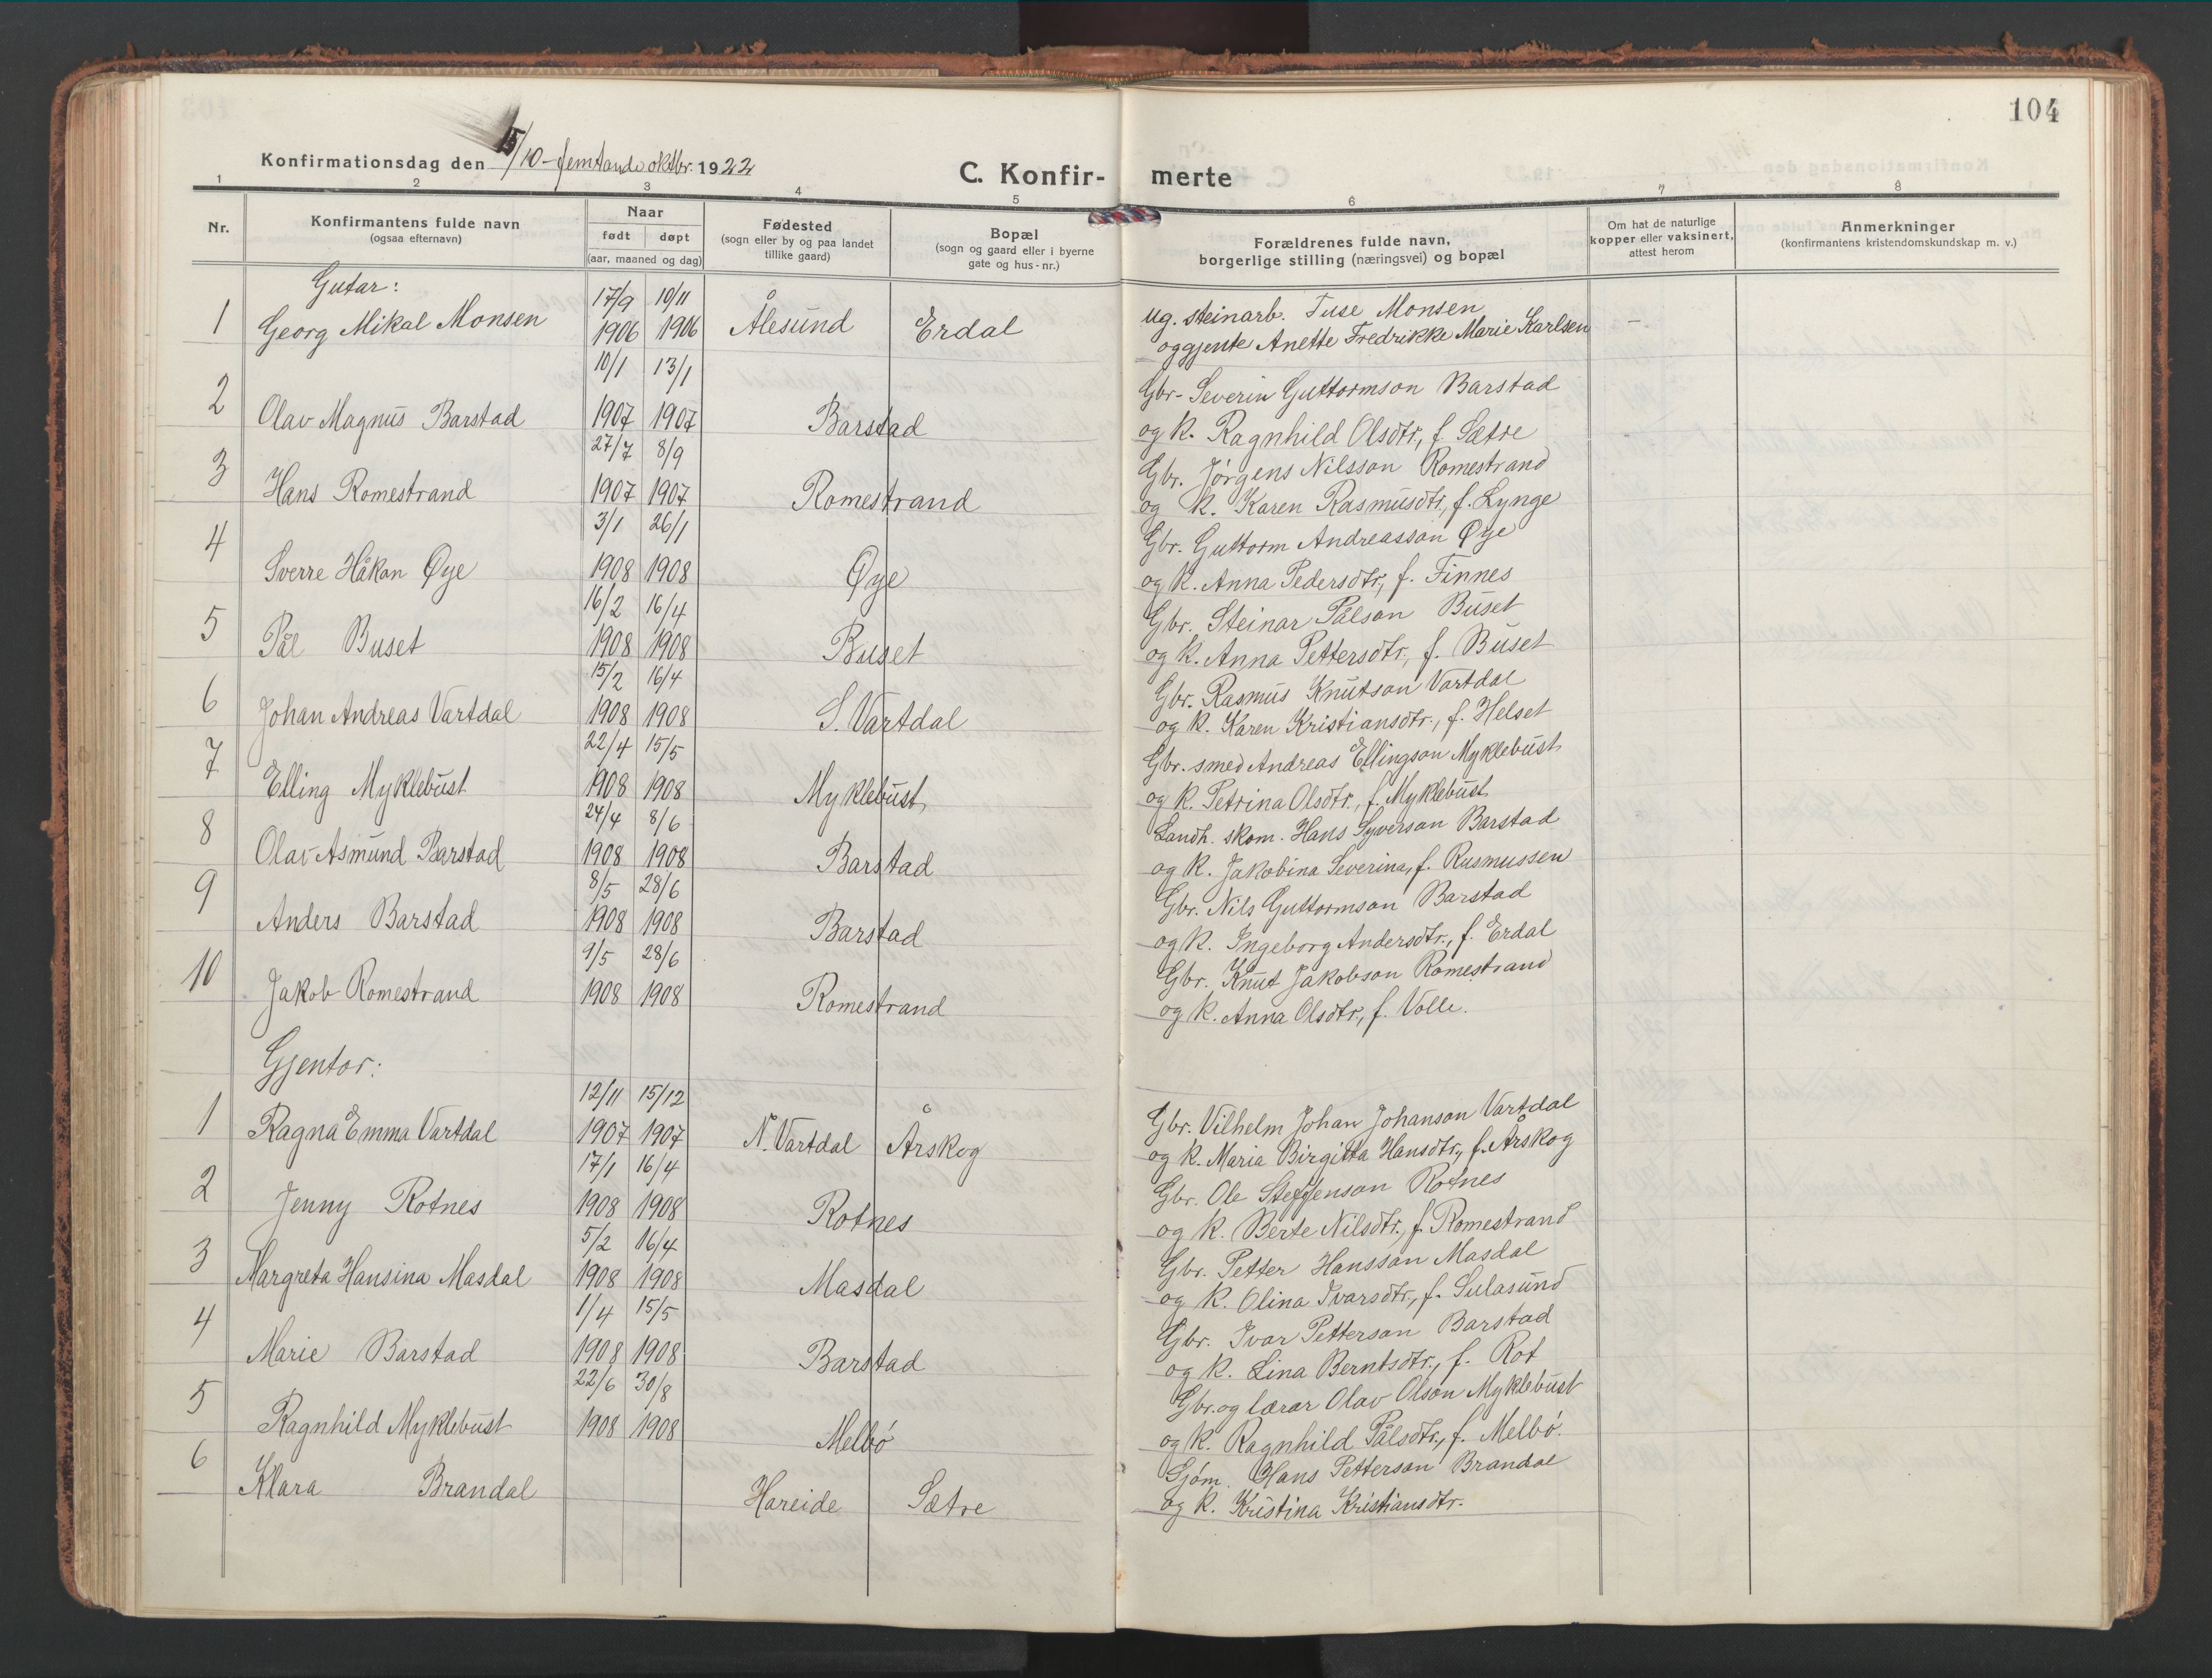 104
Konfirmationsdag den 15/10 - femtande oktbr. 1922
C. Konfir- merte
1 2 3 4 5 6 7 8
Nr.
Konfirmantens fulde navn
(ogsaa efternavn)
Naar
født døpt
(aar, maaned og dag)
Fødested
(sogn eller by og paa landet
tillike gaard)
Bopæl
(sogn og gaard eller i byerne
gate og hus-nr.)
Forældrenes fulde navn,
borgerlige stilling (næringsvei) og bopæl
Om hat de naturlige
kopper eller vaksinert,
attest herom
Anmerkninger
(konfirmantens kristendomskundskap m. v.)
Gutar:
17/9 10/11 ug. steinarb. Tuse Monsen
1 Georg Mikal Monsen 1906 1906 Ålesund Erdal og gjente Anette Fredrikke Marie Karlsen -
10/1 13/1 Gbr- Severin Guttormson Barstad
2 Olav Magnus Barstad 1907 1907 Barstad og k. Ragnhild Olsdtr, f. Sætre
27/7 8/9 Gbr. Jørgens Nilsson Romestrand
3 Hans Romestrand 1907 1907 Romestrand og k. Karen Rasmusdtr, f. Lynge
3/1 26/1 Gbr. Guttorm Andreasson Øye
4 Sverre Håkon Øye 1908 1908 Øye og k. Anna Pedersdtr, f. Finnes
16/2 16/4 Gbr. Steinar Pålson Buset
5 Pål Buset 1908 1908 Buset og k. Anna Pettersdtr, f. Buset
15/2 16/4 Gbr. Rasmus Knutson Vartdal
6 Johan Andreas Vartdal 1908 1908 S. Vartdal og k. Karen Kristiansdtr., f. Helset
22/4 15/5 Gbr. smed Andreas Ellingson Myklebust
7 Elling Myklebust 1908 1908 Myklebust og k. Petrina Olsdtr., f. Myklebust
24/4 8/6 Landh. skom. Hans Syverson Barstad
8 Olav Asmund Barstad 1908 1908 Barstad og k. Jakobina Severina, f. Rasmussen
8/5 28/6 Gbr. Nils Guttormson Barstad
9 Anders Barstad 1908 1908 Barstad og k. Ingeborg Andersdtr., f. Erdal
9/5 28/6 Gbr. Knut Jakobson Romestrand
10 Jakob Romestrand 1908 1908 Romestrand og k. Anna Olsdtr, f. Volle.
Gjentor:
12/11 15/12 Gbr. Vilhelm Johan Johanson Vartdal
1 Ragna Emma Vartdal 1907 1907 N. Vartdal Årskog og k. Maria Birgitta Hansdtr, f. Årskog
17/1 16/4 Gbr. Ole Steffenson Rotnes
2 Jenny Rotnes 1908 1908 Rotnes og k. Berte Nilsdtr., f. Romestrand
5/2 16/4 Gbr. Petter Hansson Masdal
3 Margreta Hansina Masdal 1908 1908 Masdal og k. Olina Ivarsdtr, f. Sulasund
1/4 15/5 Gbr. Ivar Petterson Barstad
4 Marie Barstad 1908 1908 Barstad og k. Lina Berntsdtr., f. Rot
22/6 30/8 Gbr. og lærar Olav Olson Myklebust
5 Ragnhild Myklebust 1908 1908 Melbø og k. Ragnhild Pålsdtr, f. Melbø.
Sjøm. Hans Petterson Brandal
6 Klara Brandal Hareide Sætre og k. Kristina Kristiansdtr.